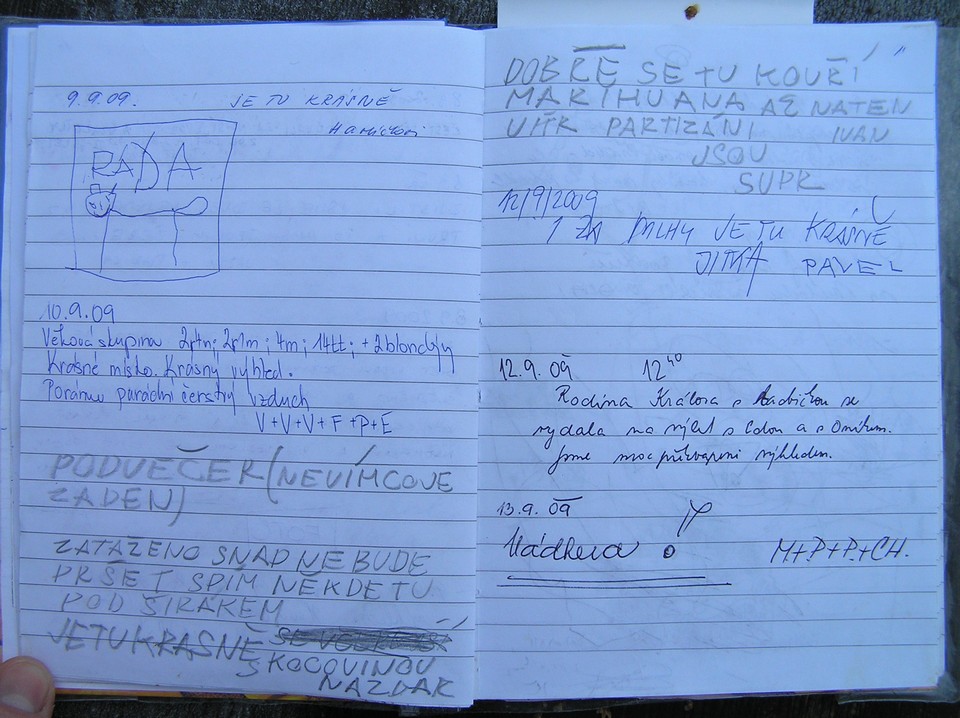 9.9.09. JE TU KRÁSNĚ
RADA
10.9.09
Věková skupina 2r4m; 2r7m; 4m; 14tt; + 2 blondýny
Krásné místo. Krásný výhled.
Poránu parádní čerstvý vzduch
V+V+V+F+P+E
PODVEČER (NEVÍMCOVE
ZADEN)
ZATAŽENO SNAD NEBUDE
PRŠET SPIM NĚKDE TU
POD ŠIRÁKEM
JETUKRASNĚ
S KOCOVINOU
NAZDAR
DOBŘE SE TU KOUŘÍ
MARIHUANA AŽ NATEN
PARTIZÁNI IVAN
JSOU
SUPR
12/9/2009
I ZA MLHY JE TU KRÁSNĚ
JITKA PAVEL
12.9.09 12 40
Rodina Králova s babičkou se
vydala na výlet s
Jsme moc překvapeni výhledem.
13.9.09
Nádhera
M+P+P+CH.